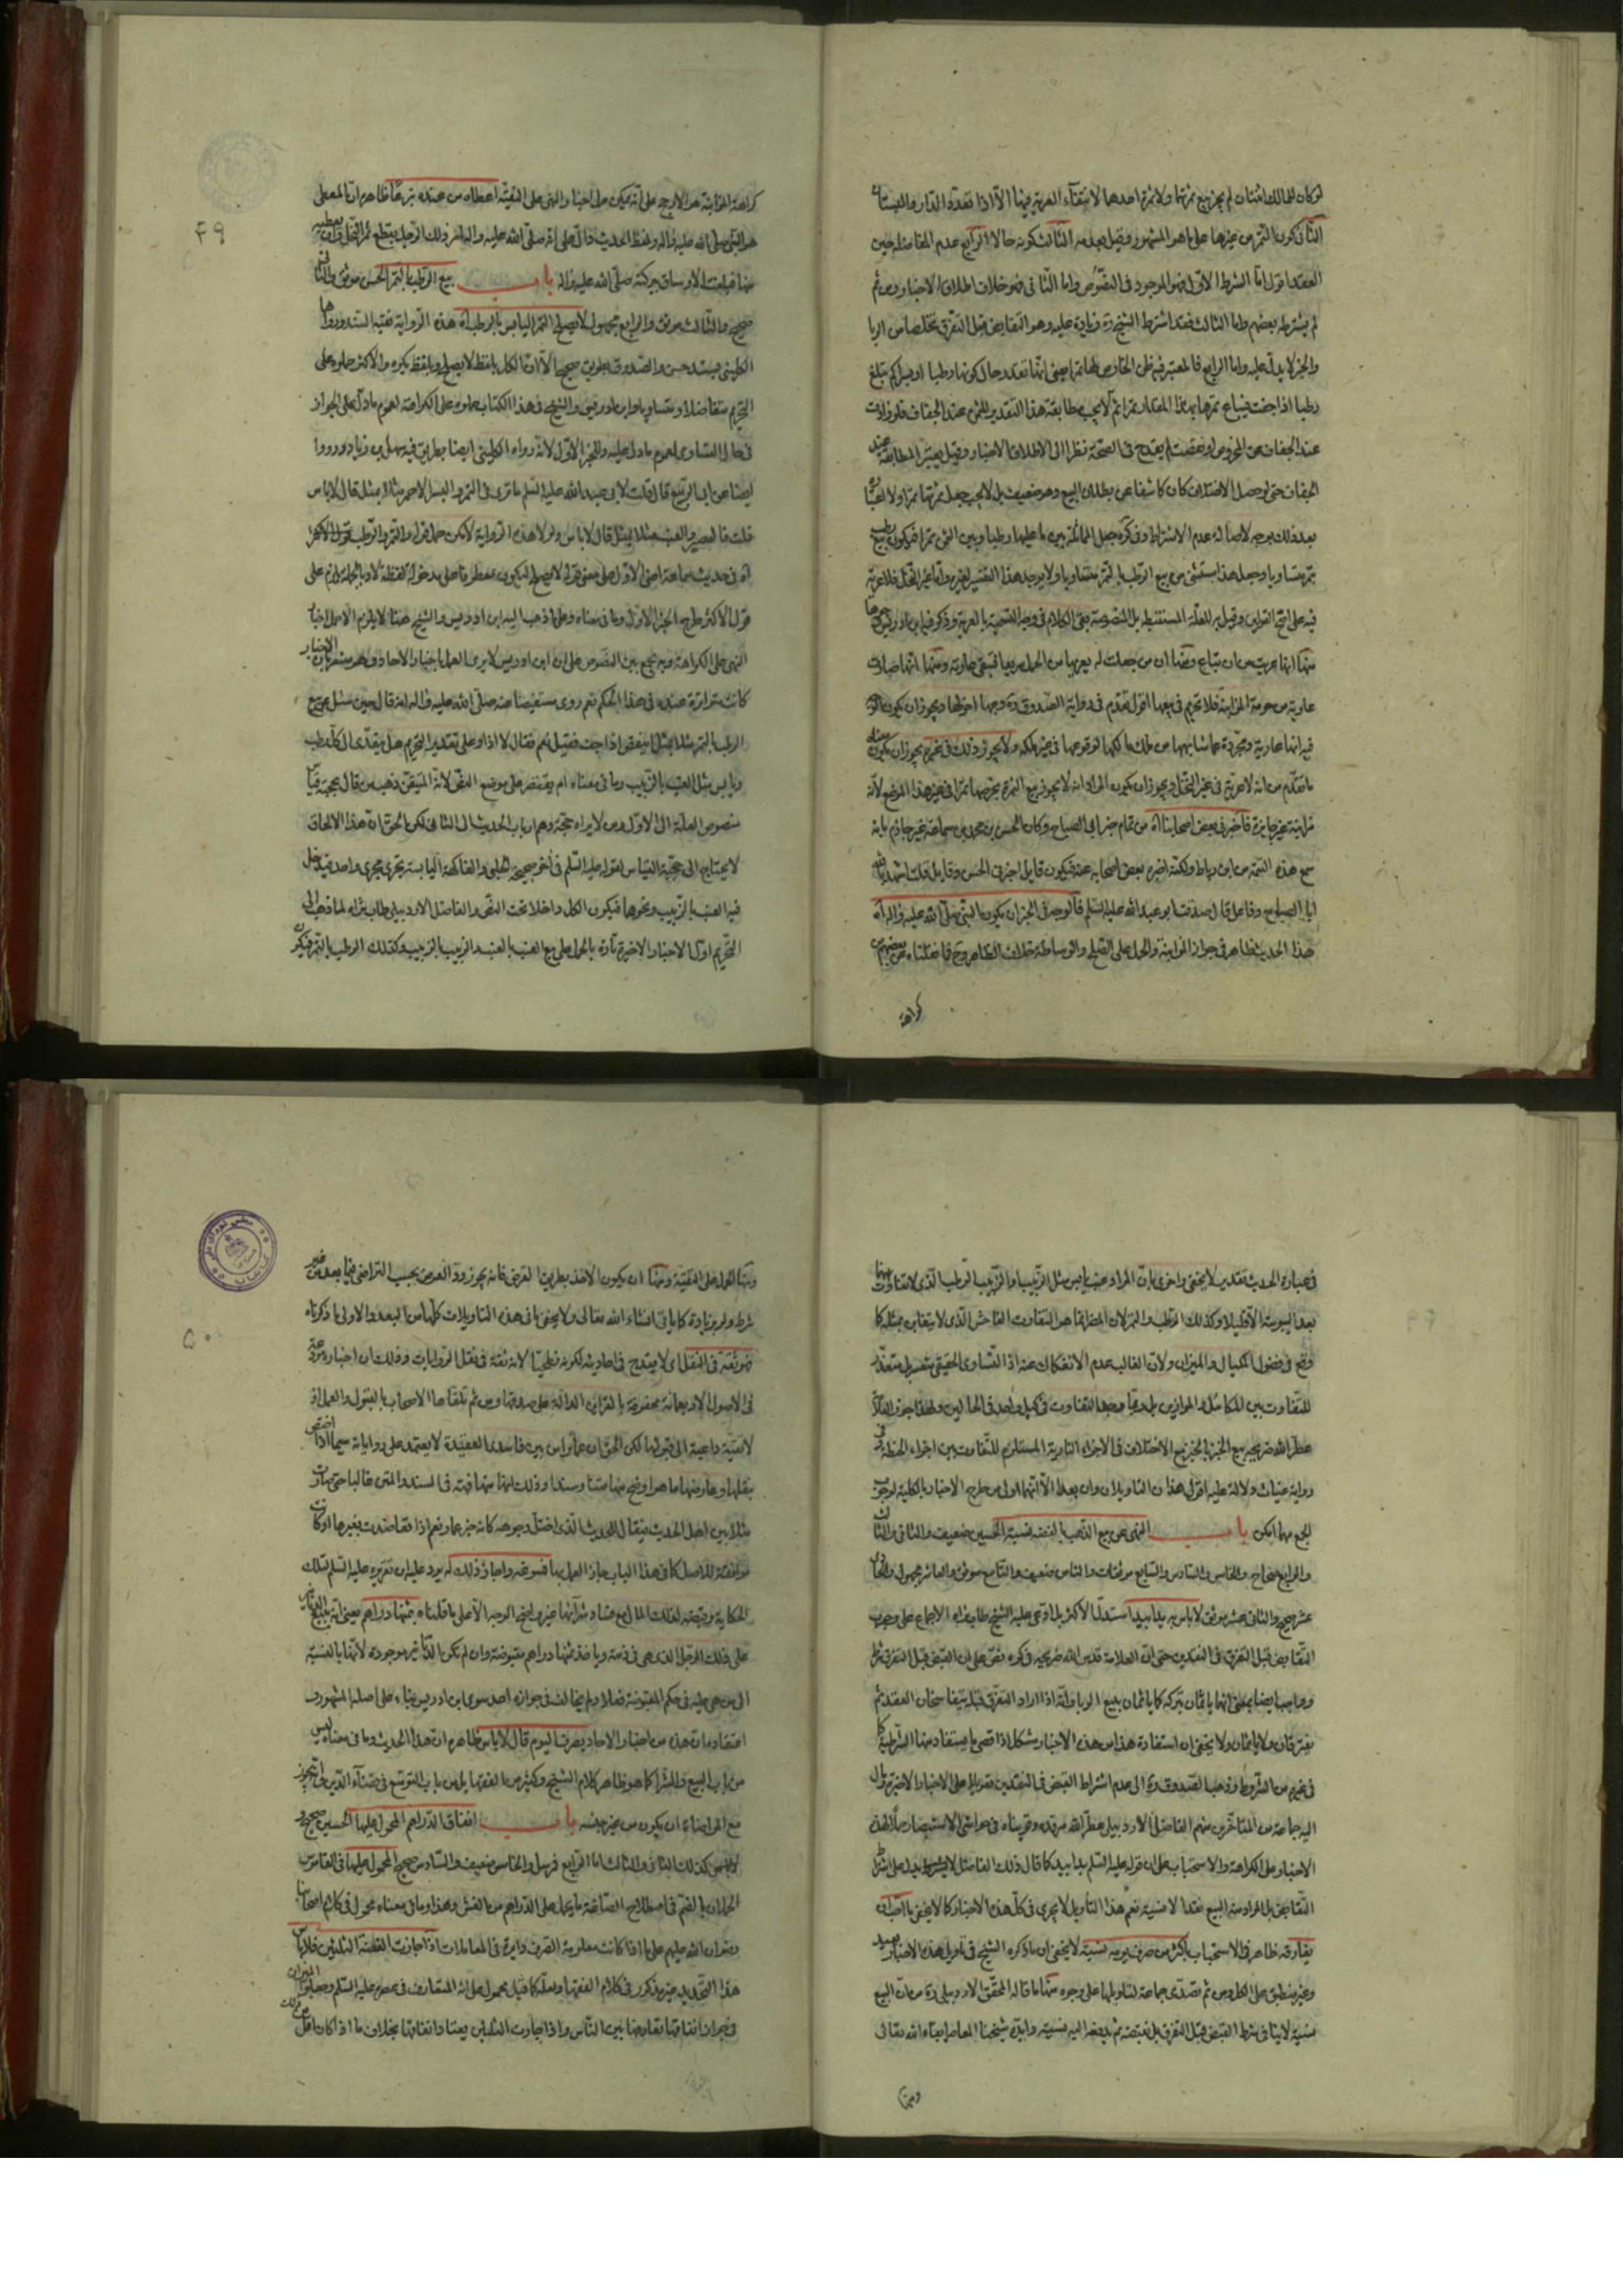 لو كان للمالك اثنتان لم يجز بيع ثمرتها ولا ثمرة احدهما لانتفاء العرية فيهما الا اذا تعددت الدار والبستان
الثاني كون الثمن من غيرها على ما هو المشهور وقيل بعدمه الثالث كونه حالا الرابع عدم المفاضلة حين
العقد اقول اما الشرط الاول فهو الموجود في النصوص واما الثاني فهو خلاف اطلاق الاخبار ومن ثم
لم يشترطه بعضهم واما الثالث فقد اشترط الشيخ ره زيادة عليه وهو التقابض قبل التفرق تخلصا من الربا
والخبر لا يدل عليه واما الرابع فالمعتبر فيه ظن الخارص لها تمرا بمعنى انها تقدر حال كونها رطبا او بسرا كم تبلغ
رطبا اذا جفت فيباع ثمرها بهذا المقدار تمرا ثم لا يجب مطابقة هذا التقدير للثمن عند الجفاف فلو زادت
عند الجفاف عن المخروص او نقصت لم يقدح في الصحة نظرا الى اطلاق الاخبار وقيل يعتبر المطابقة عند
الجفاف حتى لو حصل الاختلاف كان كاشفا عن بطلان البيع وهو ضعيف بل لا يجب جعل ثمرتها تمرا ولا اعتبار
بعد ذلك بوجه لاصالة عدم الاشتراط وفي كره جعل المماثلة بين ما عليها رطبا وبين الثمن تمرا فيكون بيع رطب
بتمر متساويا وجعل هذا مستثنى من بيع الرطب بالتمر متساويا ولا يوجد هذا التفسير لغيره واما غير النخل فلا عرية
فيه على
منها انها عريت من ان تباع ومنها ان من جعلت له يعريها من الحمل
عارية من حرمة المزابنة فلا تحريم في بيعها اقول تقدم في رواية الصدوق ره وجها اخر لها ويجوز ان يكون
ما تقدم من انه لا عرية في غير النخل ويجوز ان يكون المراد انه لا يجوز بيع الثمرة بخرصها تمرا في غير هذا الموضع لانه
مزابنة غير جايزة فاخبرني بعض اصحابنا اه من تمام خبر ابي الصباح وكان الحسن بن محمد بن سماعة غير جازم بانه
سمع هذه التتمة من ابن رباط ولكنه اخبره بعض اصحابه عنه فيكون قايل اخبرني الحسن وقايل قلت
ابا الصباح وفاعل قال صدقت ابو عبد الله عليه السلم فالوجه في الخبران يكون النبي صلى الله عليه واله اه
هذا الحديث ظاهر في جواز المزابنة والحمل على الصلح والوساطة خلاف الظاهر
كراهة
كراهة المزابنة هو الارجح على انه يمكن حمل اخبار النهي على التقية اعطاه من عنده تبرعا ظاهره ان المعطي
هو النبي صلى الله عليه واله ولفظ الحديث قال على انه صلى الله عليه واله امر ذلك الرجل بقطع ثمر النخل
منها فبلغت الاوساق ببركته صلى الله عليه واله باب بيع الرطب بالتمر الحسن موثق والثاني
صحيح والثالث موثق والرابع مجهول لا يصلح التمر اليابس بالرطب اه هذه الرواية نفيه السند ورواها
الكليني بسند حسن والصدوق بطريق صحيح الا ان الكل بلفظ لا يصلح وبلفظ يكره والاكثر حملوه على
التحريم متفاضلا ومتساويا وابن ادريس والشيخ في هذا الكتاب حملوه على الكراهة لعموم ما دل على الجواز
في حال التساوي لعموم ما دل عليه وللخبر الاول لانه رواه الكليني ايضا بطريق فيه سهل بن زياد ورووا
ايضا عن ابي الربيع قال قلت لابي عبد الله عليه السلم ما ترى في التمر والبسر الاحمر مثلا بمثل قال لا باس
قلت فالعصير والعنب مثلا بمثل قال لا باس ولولا هذه الرواية لامكن حمل
اه في حديث سماعة اعني الاول على معنى قوله لا يصلح ليكون معطوفا على مدخول لفظة لا وبالجملة يلزم على
قول الاكثر طرح الخبر الاول وما في معناه وعلى ما ذهب اليه ابن ادريس والشيخ هنا لا يلزم الا حمل اخبار
النهي على الكراهة وبه يجمع بين النصوص على ان ابن ادريس لا يرى العمل باخبار الاحاد
كانت متواترة عنده في هذا الحكم نعم روى مستفيضا عنه صلى الله عليه واله انه قال حين سئل عن بيع
الرطب بالتمر مثلا بمثل اينقص اذا جف فقيل نعم فقال لا اذا وعلى تقدير التحريم هل يتعدى الى كل رطب
ويابس مثل العنب بالزبيب وما في معناه ام يقتصر على موضع النص لانه المتيقن ذهب من قال بحجية قياس
منصوص العلة الى الاول ومن لا يراه حجة وهم ارباب الحديث الى الثاني لكن الحق ان هذا الالحاق
لا يحتاج الى حجية القياس لقوله عليه السلم في اخر صحيحة الحلبي والفاكهة اليابسة تجري مجرى واحد فيدخل
فيه العنب بالزبيب ونحوها فيكون الكل داخلا تحت النص والفاضل الاردبيلي طاب ثراه لما ذهب الى
التحريم اول الاخبار الاخيرة تارة بالحمل على بيع العنب بالعنب والزبيب بالزبيب وكذلك الرطب بالتمر
۴۹
في عبارة الحديث تقدير لا يخفى واخرى بان المراد عنب يابس مثل الزبيب والزبيب الرطب الذي لا تفاوت بينهما
بعد اليبوسة الا قليلا وكذلك الرطب والتمر لان المضر انما هو التفاوت الفاحش الذي لا يتغابن بمثله كما
وقع في فضول المكيال والميزان ولان الغالب عدم الانفكاك عنه اذ التساوي الحقيقي متعسر بل متعذر
للتفاوت بين المكاييل والموازين بل ربما وجد التفاوت في كيل واحد في الحالين
عطر الله ضريحه بيع الخبز بالخبز مع الاختلاف في الاجزاء النارية المستلزم للتفاوت بين اجزاء الحنطة وفي
رواية غياث دلالة عليه اقول هذان التاويلان وان بعدا الا انهما اولى من طرح الاخبار بالكلية لوجوب
الجمع مهما امكن باب النهي عن بيع الذهب بالفضة نسية الحسين ضعيف والثاني والثالث
والرابع صحاح والخامس والسادس والسابع موثقات والثامن ضعيف والتاسع موثق والعاشر مجهول والحادي
عشر صحيح والثاني عشر موثق لا باس به يدا بيد استدل الاكثر بل ادعى عليه الشيخ طاب ثراه الاجماع على وجوب
التقابض قبل التفرق في النقدين حتى ان العلامة قدس الله ضريحه في كره نص على ان القبض قبل التفرق شرط
وواجب ايضا بمعنى انهما ياثمان بتركه كما ياثمان ببيع الربا وانه اذا اراد التفرق قبله يتفاسخان العقد ثم
يفترقان ولا ياثمان ولا يخفى ان استفادة هذا من هذه الاخبار مشكل اذ اقصى ما يستفاد منها الشرطية كما
في غيره من الشروط وذهب الصدوق ره الى عدم اشتراط القبض في النقدين تعويلا على الاخبار الاخيرة ومال
اليه جماعة من المتاخرين منهم الفاضل الاردبيلي عطر الله مرقده وقويناه في حواشي الاستبصار حملا لهذه
الاخبار على الكراهة والاستحباب على ان قوله عليه السلم يدا بيد كما قال ذلك الفاضل لا
التقابض بل المراد منه البيع نقدا لا نسية نعم هذا التاويل لا يجري في كل هذه الاخبار كما لا يخفى
يفارقه ظاهر في الاستحباب باكثر من صرف يومه نسية لا يخفى ان ما ذكره الشيخ في تاويل هذه الاخبار بعيد
وغير منطبق على الكل ومن ثم تصدى جماعة لتاويلها على وجوه منها ما قاله المحقق الاردبيلي ره من ان البيع
نسية لا ينافي شرط القبض قبل التفرق بل نقبضه ثم يدفعه اليه نسية وايده شيخنا المعاصر ابقاه الله تعالى
ومنها
ومنها الحمل على التقية ومنها ان يكون الاخذ بطريق القرض فانه يجوز رد العوض بحسب التراضي فيما بعد من غير
شرط ولو بزيادة كما ياتي انشاء الله تعالى ولا يخفى ما في هذه التاويلات كلها من البعد والاولى ما ذكرناه
فهو ثقة في النقل اي لا يقدح في احاديثه لكونه فطحيا لانه ثقة في نقل الروايات وذلك ان اخباره مودعة
في الاصول الاربعمائة محفوفة بالقراين الدالة على صدقها ومن ثم تلقاها الاصحاب بالقبول والعمل اذ
لا تقية داعية الى قبولها لكن الحق ان عمارا من بين فاسدي العقيدة لا يعتمد على رواياته سيما اذا اختص
بنقلها وعارضها ما هو اوضح منها متنا وسندا وذلك لما تهافته في السند والمتن غالبا حتى صارت
مثلا بين اهل الحديث فيقال للحديث الذي اختل وجوهه كانه خبر عمار نعم اذا تعاضدت بغيرها او كانت
موافقة للاصل كما في هذا الباب جاز العمل بها فسوغه واجاز ذلك له يرد عليه ان تقريره عليه السلم لتلك
على ذلك الرجل الذي هي في ذمته وياخذ ثمنها دراهم مقبوضة وان لم تكن الدنانير موجودة لانها بالنسبة
الى من هي عليه في حكم المقبوضة فعلا ولم يخالف في جوازه احد سوى ابن ادريس بناء على اصله المشهور في
اعتقاده ان هذه من اخبار الاحاد بصرفها اليوم قال لا باس ظاهره ان هذا الحديث وما في معناه ليس
من باب البيع والشرا كما هو ظاهر كلام الشيخ وكثير من الفقها بل من باب التوسع في قضاء الدين وانه يجوز
مع المراضاة ان يكون من غير جنسه باب انفاق الدراهم المحمول عليها الحسين صحيح
كذلك الثاني والثالث اما الرابع فمرسل والخامس ضعيف والسادس صحيح المحمول عليها في القاموس
الحملان بالضم في اصطلاح الصاغة ما يحمل على الدراهم من الغش وهذا وما في معناه محمول في كلام اصحابنا
رضوان الله عليهم على ما اذا كانت معلومة الصرف دايرة في المعاملات اذا جازت الفضة الثلثين فلا باس
هذا التحديد غير مذكور في كلام الفقها ولعله كما قيل محمول على انه المتعارف في عصره عليه السلم
في جواز انفاقها تعارفها بين الناس واذا جازت الثلثين يعتاد انفاقها بخلاف ما اذا كان اقل من ذلك
۵۰